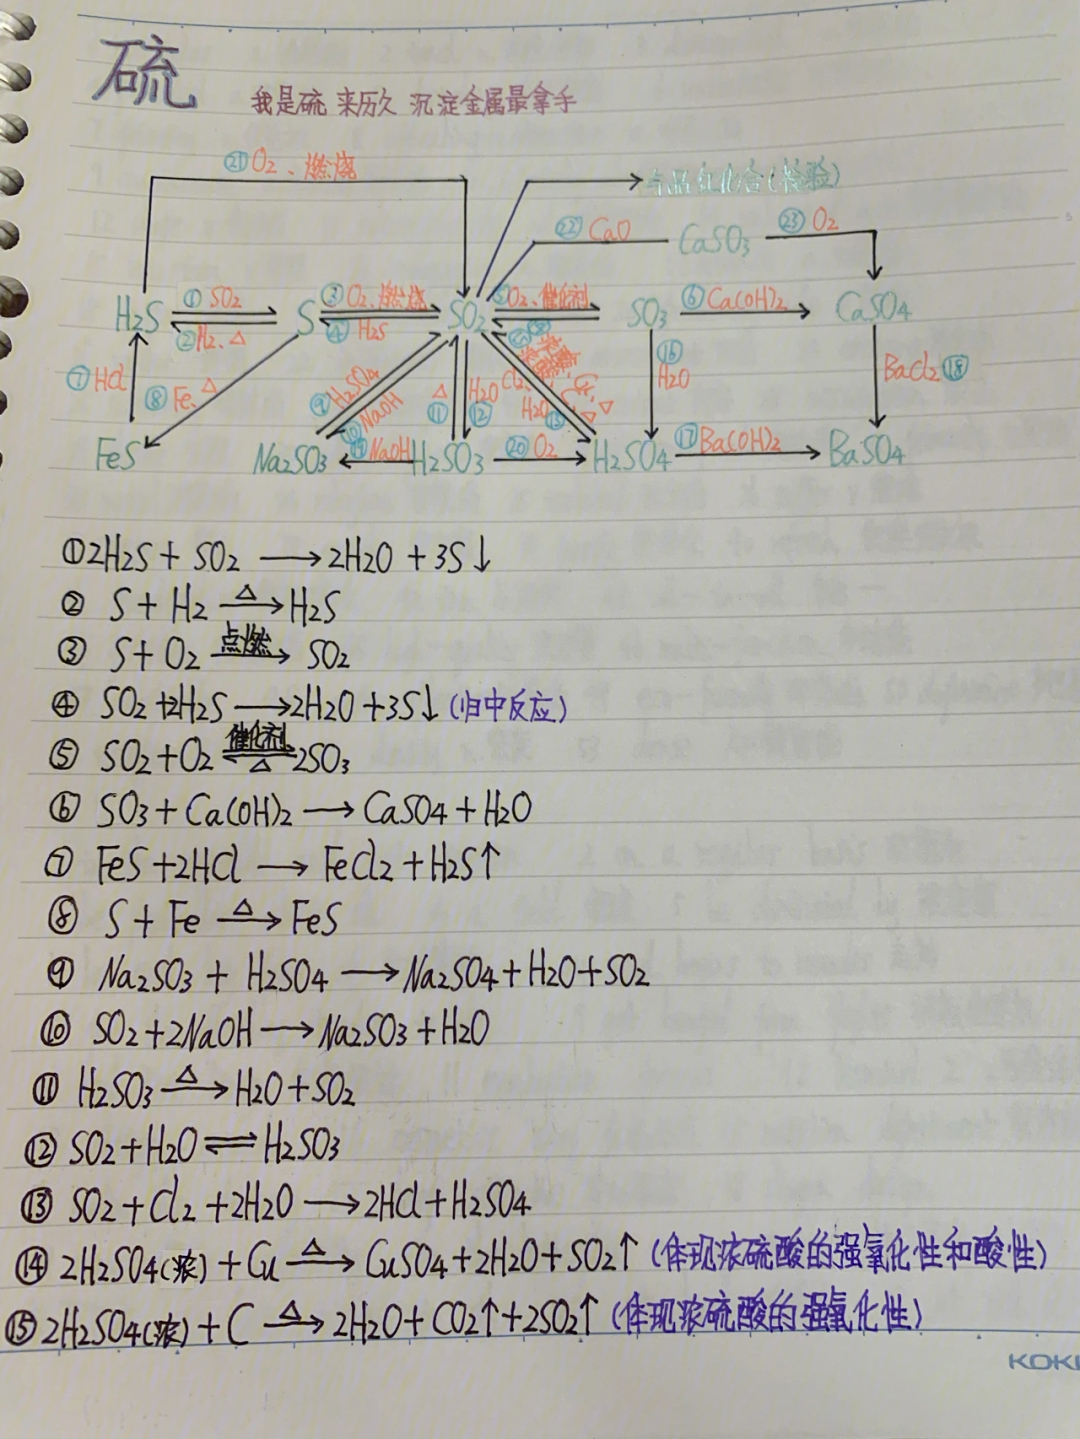 硫
我是硫 来历久 沉淀金属最拿手
㉑O2、燃烧
与品红化合(检验)
㉒CaO CaSO3 ㉓O2
H2S ①SO2 S ③O2、燃烧 SO2 ⑤O2、催化剂 SO3 ⑥Ca(OH)2 CaSO4
②H2、△ ④H2S
⑦HCl ⑧Fe、△ ⑨H2SO4 ⑩NaOH △⑪ H2O⑫ Cl2、H2O⑬ 浓、Cu、△ 浓、C、△ ⑯H2O BaCl2⑱
FeS Na2SO3 ⑲NaOH H2SO3 ⑳O2 H2SO4 ⑰Ba(OH)2 BaSO4
①2H2S + SO2 ⟶ 2H2O + 3S↓
② S + H2 △⟶ H2S
③ S + O2 点燃⟶ SO2
④ SO2+2H2S ⟶ 2H2O +3S↓ (归中反应)
⑤ SO2+O2 催化剂⇌△ 2SO3
⑥ SO3 + Ca(OH)2 ⟶ CaSO4 + H2O
⑦ FeS +2HCl ⟶ FeCl2 + H2S↑
⑧ S + Fe △⟶ FeS
⑨ Na2SO3 + H2SO4 ⟶ Na2SO4+H2O+SO2
⑩ SO2+2NaOH ⟶ Na2SO3 +H2O
⑪ H2SO3 △⟶ H2O+SO2
⑫ SO2+H2O ⇌ H2SO3
⑬ SO2+Cl2 +2H2O ⟶ 2HCl+H2SO4
⑭ 2H2SO4(浓) + Cu △⟶ CuSO4+2H2O+SO2↑ (体现浓硫酸的强氧化性和酸性)
⑮ 2H2SO4(浓) + C △⟶ 2H2O+CO2↑+2SO2↑ (体现浓硫酸的强氧化性)